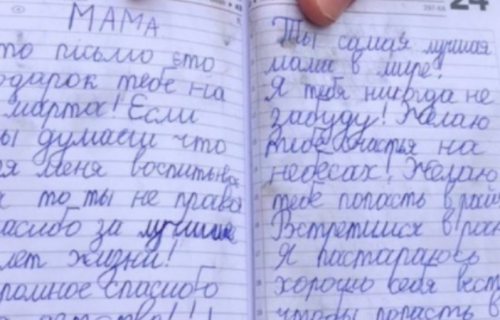 МАМА
это письмо ето
подарок тебе на
марта! Если
ты думаеш что
зря меня воспитывала
то ты не права
спасибо за лучшие
лет жизни!
огромное спасибо
за детство!!!
24
Ты самая лучшая
мама в мире!
Я тебя никогда не
забуду! Желаю
тебе счастья на
небесах! Желаю
тебе попасть в рай
Встретимся в раю
Я пастараюсь
хорошо себя вести
чтобы попасть в